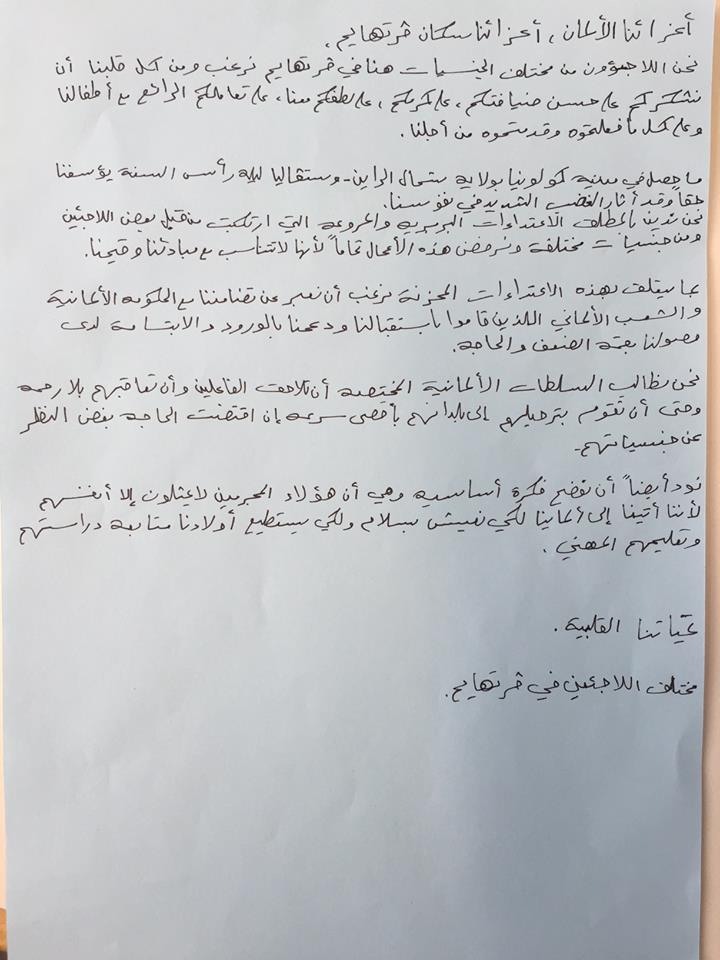 أعزائنا الألمان، أعزائنا سكان ڤرتهايم،
نحن اللاجئون من مختلف الجنسيات هنا في ڤرتهايم نرغب ومن كل قلبنا أن
نشكركم على حسن ضيافتكم، على كرمكم، على لطفكم معنا، على تعاملكم الرائع مع أطفالنا
وعلى كل ما فعلتموه وقدمتموه من أجلنا.
ما حصل في مدينة كولونيا بولاية شمال الراين - وستفاليا ليلة رأس السنة يؤسفنا
حقاً وقد أثار الغضب الشديد في نفوسنا.
نحن ندين بالمطلق الاعتداءات البربرية والمروعة التي ارتكبت من قبل بعض اللاجئين
ومن جنسيات مختلفة ونرفض هذه الأعمال تماماً لأنها لا تتناسب مع مبادئنا وقيمنا.
بما يتعلق بهذه الاعتداءات المحزنة نرغب أن نعبر عن تضامننا مع الحكومة الألمانية
والشعب الألماني اللذين قاموا باستقبالنا ودعمنا بالورود والابتسامة لدى
وصولنا بقمة الضعف والحاجة.
نحن نطالب السلطات الألمانية المختصة أن تلاحق الفاعلين وأن تعاقبهم بلا رحمة
وحتى أن تقوم بترحيلهم إلى بلدانهم بأقصى سرعة إن اقتضت الحاجة بغض النظر
عن جنسياتهم.
نود أيضاً أن نوضح فكرة أساسية وهي أن هؤلاء المجرمين لا يمثلون إلا أنفسهم
لأننا أتينا إلى ألمانيا لكي نعيش بسلام ولكي يستطيع أولادنا متابعة دراستهم
وتعليمهم المهني.
تحياتنا القلبية.
مختلف اللاجئين في ڤرتهايم.